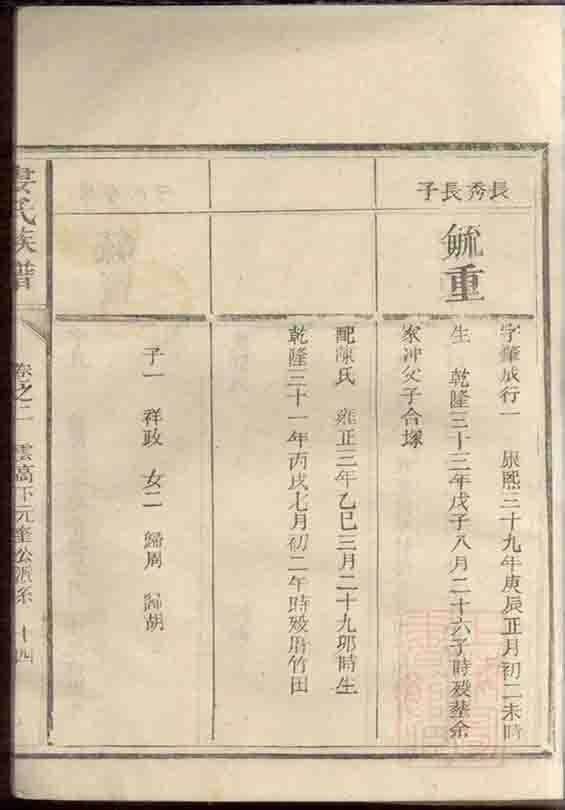 長秀長子
毓重
字肇成行一 康熙三十九年庚辰正月初二未時
生 乾隆三十三年戊子八月二十六子時殁塟余
家沖父子合塚
配陳氏 雍正三年乙巳三月二十九耶時生
乾隆三十一年丙戌七月初二午時殁厝竹田
子一 祥政 女二 歸周 歸胡
婁氏族譜 卷之二 雲高下元奎公派系 十四